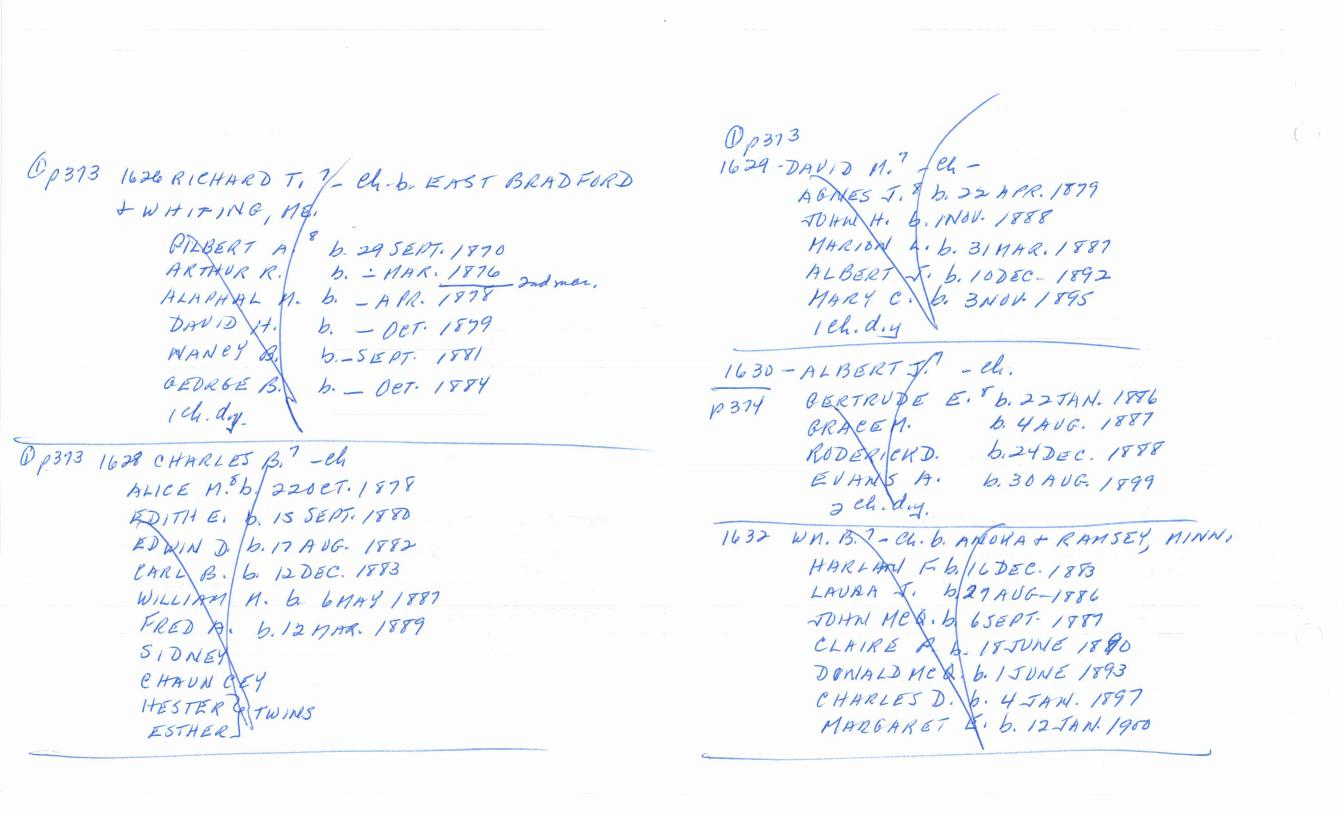 ① p373 1626 RICHARD T.⁷ - Ch. b. EAST BRADFORD
+ WHITING, ME.
GILBERT A.⁸ b. 29 SEPT. 1870
ARTHUR R. b. - MAR. 1876
2nd mar.
ALAPHAL M. b. - APR. 1878
DAVID H. b. - OCT. 1879
NANCY B. b. - SEPT. 1881
GEORGE B. b. - OCT. 1884
1 ch. d.y.
① p373 1628 CHARLES B.⁷ - Ch
ALICE M.⁸ b. 22 OCT. 1878
EDITH E. b. 15 SEPT. 1880
EDWIN D. b. 17 AUG. 1882
CARL B. b. 12 DEC. 1883
WILLIAM M. b. 6 MAY 1887
FRED A. b. 12 MAR. 1889
SIDNEY
CHAUNCEY
HESTER } TWINS
ESTHER
① p373
1629 - DAVID M.⁷ - Ch -
AGNES J.⁸ b. 22 APR. 1879
JOHN H. b. 1 NOV. 1888
MARION L. b. 31 MAR. 1887
ALBERT J. b. 10 DEC - 1892
MARY C. b. 3 NOV. 1895
1 ch. d.y
1630 - ALBERT J.⁷ - ch.
p374 GERTRUDE E.⁸ b. 22 JAN. 1886
GRACE M. b. 4 AUG. 1887
RODERICK D. b. 24 DEC. 1888
EVANS A. b. 30 AUG. 1899
2 ch. d.y.
1632 WM. B.⁷ - Ch. b. ANOKA + RAMSEY, MINN.
HARLAN F. b. 16 DEC. 1883
LAURA J. b. 27 AUG - 1886
JOHN MCQ. b. 6 SEPT. 1887
CLAIRE A. b. 18 JUNE 1890
DONALD MCQ. b. 1 JUNE 1893
CHARLES D. b. 4 JAN. 1897
MARGARET E. b. 12 JAN. 1900